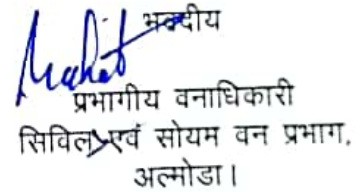 भवदीय
प्रभागीय वनाधिकारी
सिविल एवं सोयम वन प्रभाग,
अल्मोडा।